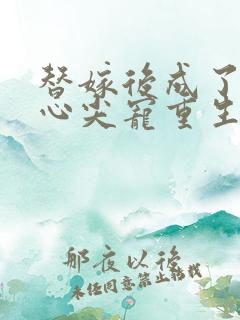 替嫁後成了
心尖寵重生
那夜以後
未经同意禁止转载